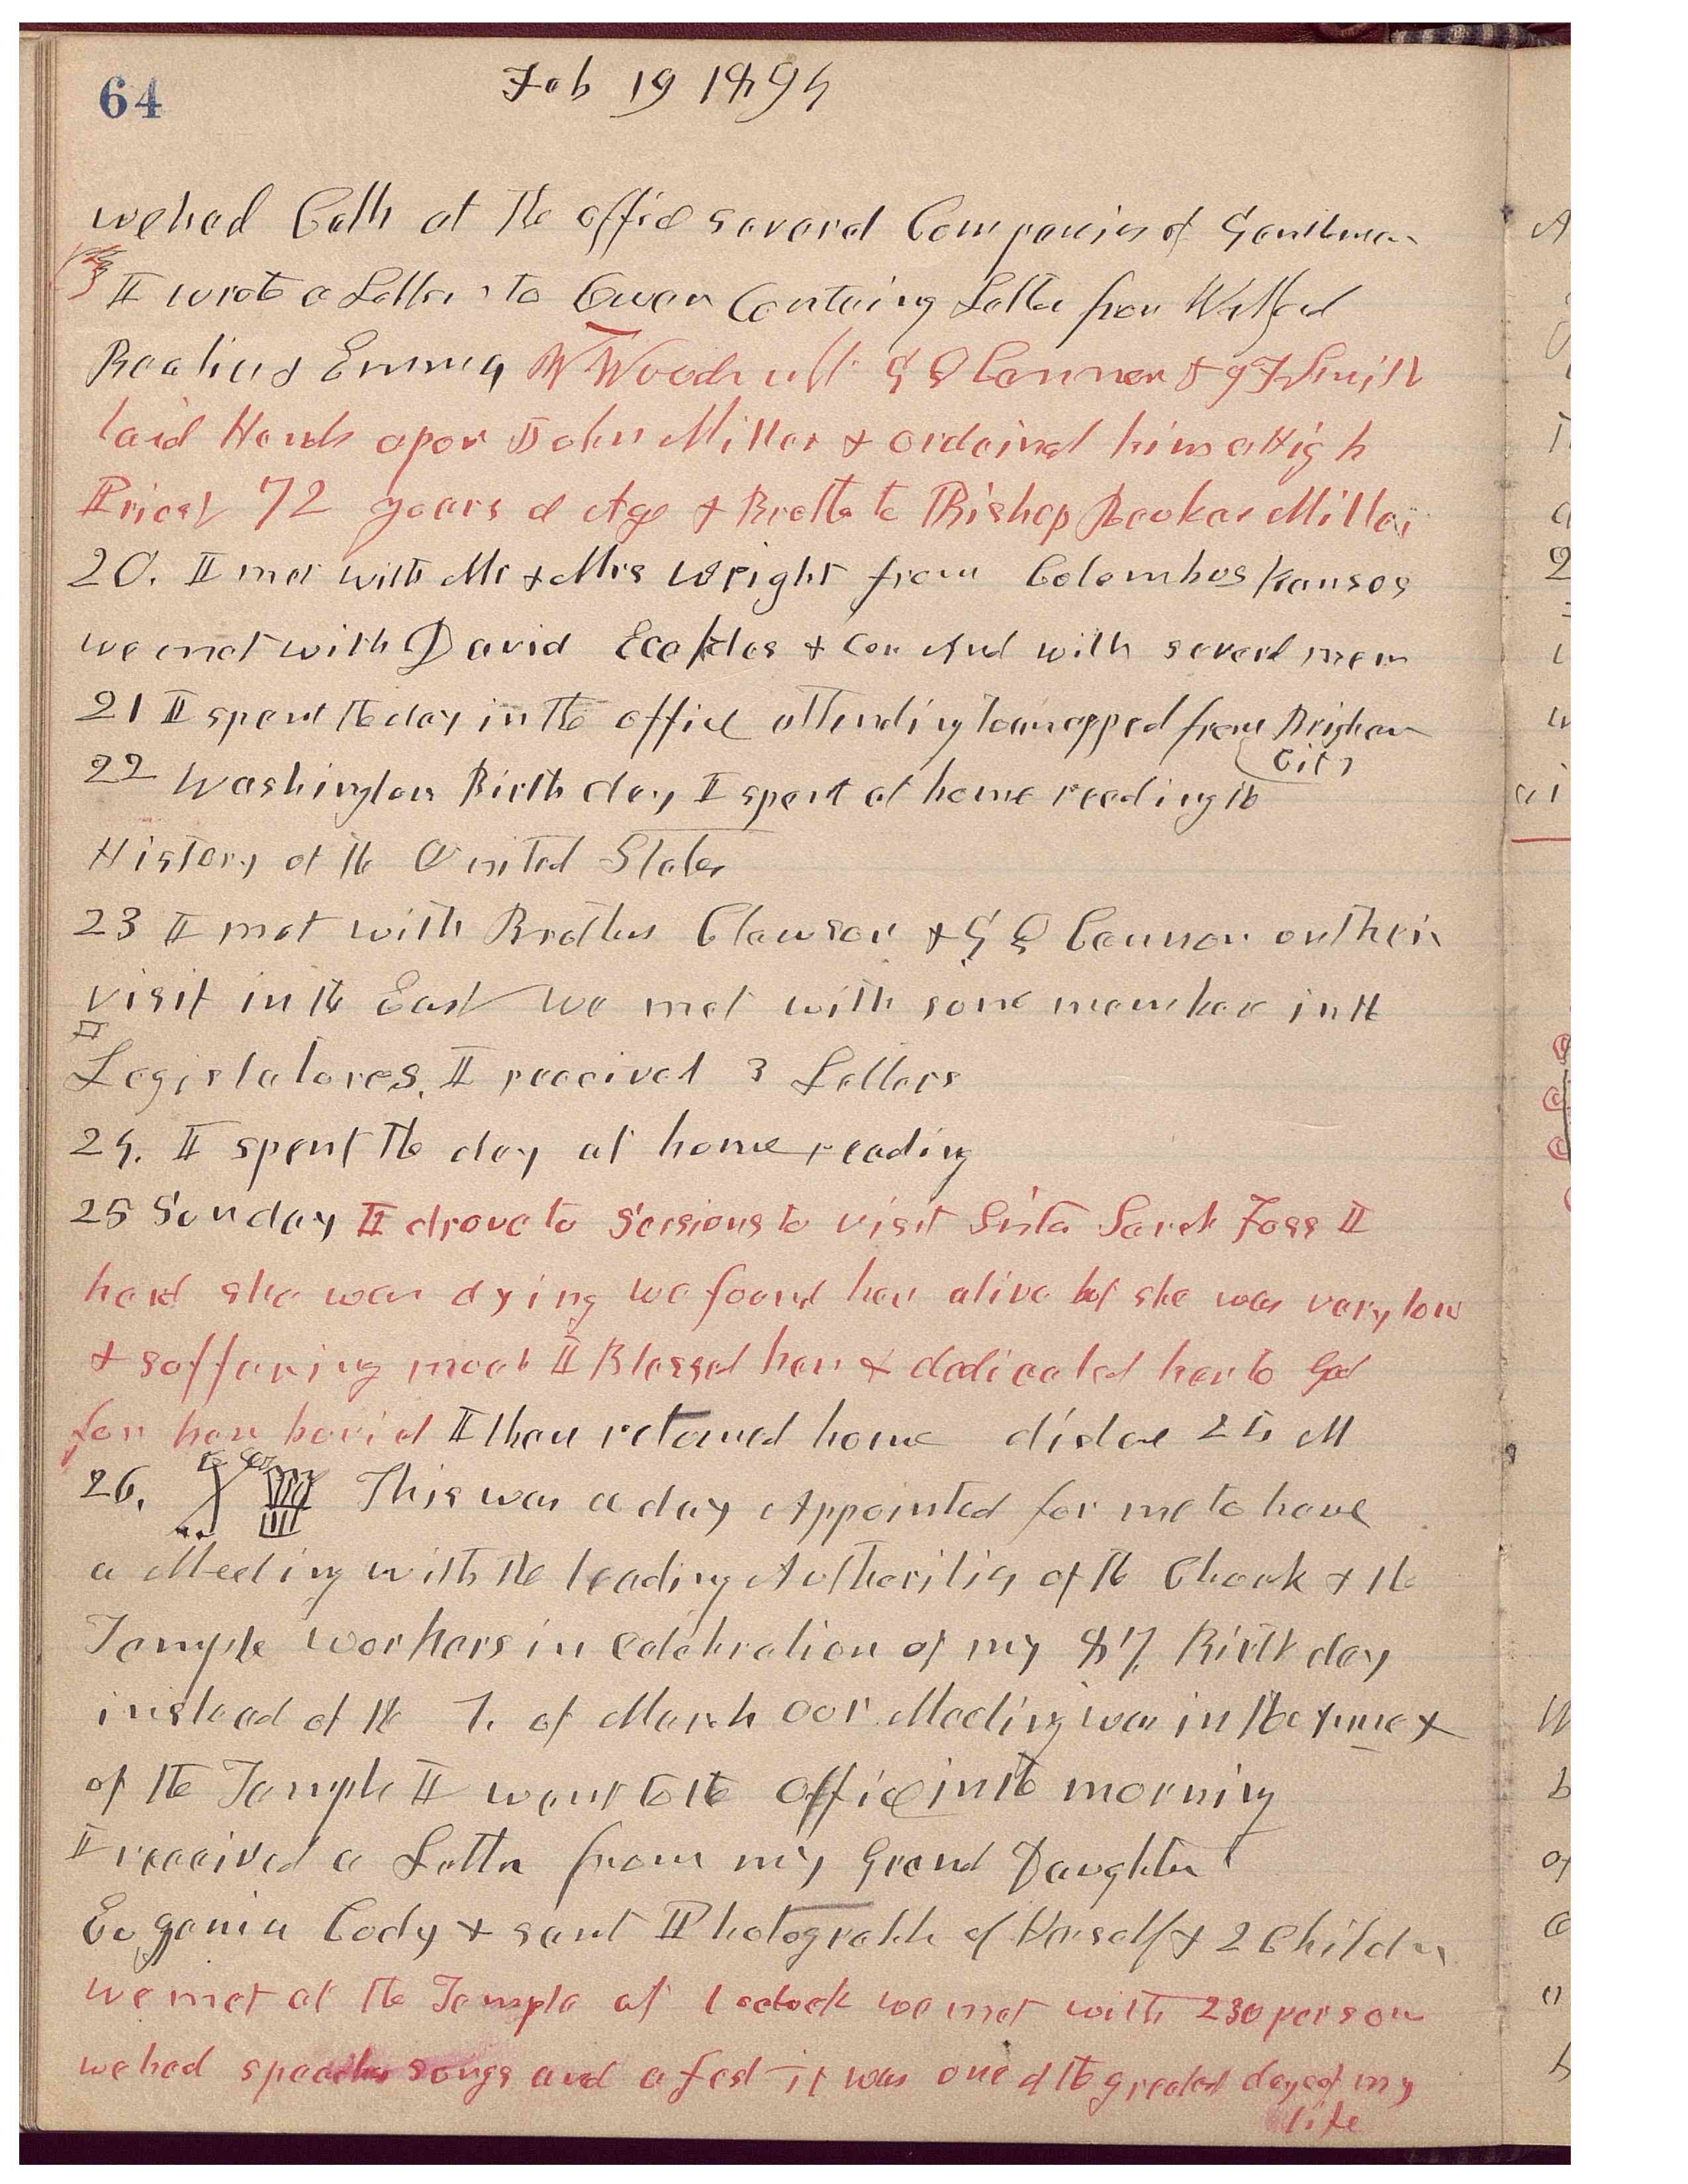 64
Feb 19 1894
we had Calls at the office several Companies of Gentlemen
I wrote a Letter to Owen Containing Letter from Wilford
Beatie & Emma W Woodruff G Q Cannon & J F Smith
laid Hands upon John Miller & ordained him a High
Priest 72 years of Age & Brother to Bishop Reuben Miller
20. I met with Mr & Mrs Wright from Colombus Kansas
we met with David Eccles & Co And with severl men
21 I spent the day in the office attending from Brigham
City
22 Washington Birth day I spent at home reading the
History of the United States
23 I met with Brothers Clawson & G Q Cannon on their
visit in the East We met with some member in the
Legislatores. I received 3 Letters
24. I spent the day at home reading
25 Sunday I drove to Sessions to visit Sister Sarah Foss I
heard she was dying we found her alive but she was very low
& soffering much I Blessed her & dedicated her to God
for her buriel I then retorned home distance 25 M
26. This was a day Appointed for me to have
a Meeting with the leading Authorities of the Church & the
Temple workers in celebration of my 87 Birth day
instead of the 1. of March our Meeting was in the Annex
of the Temple I went to the Office in the morning
I received a Letter from my Grand Daughter
Eugania Cody & sent Photograph of Herself & 2 Children
We met at the Temple at 1 oclock we met with 230 person
we had speeches songs and a fest it was one of the greatest days of my
life